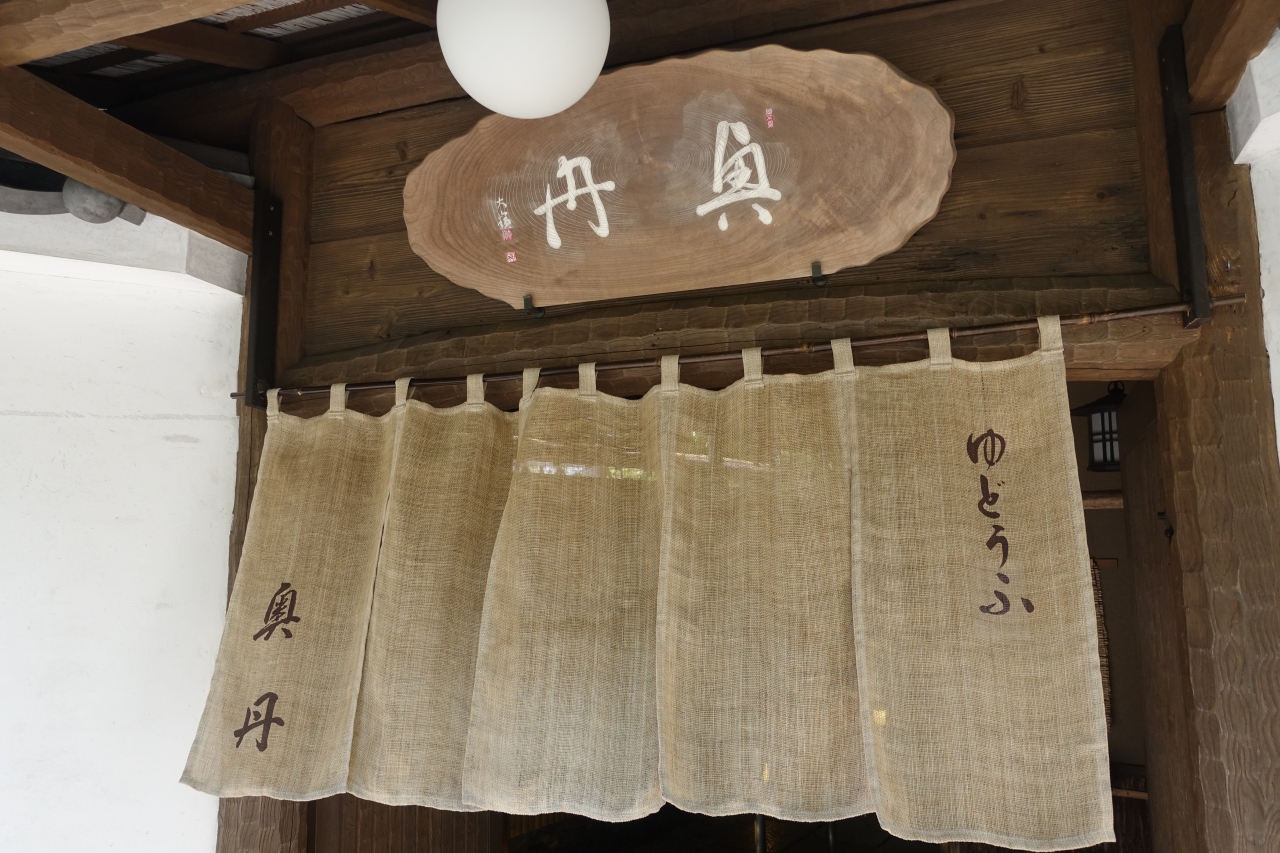 奥丹
ゆどうふ
奥丹